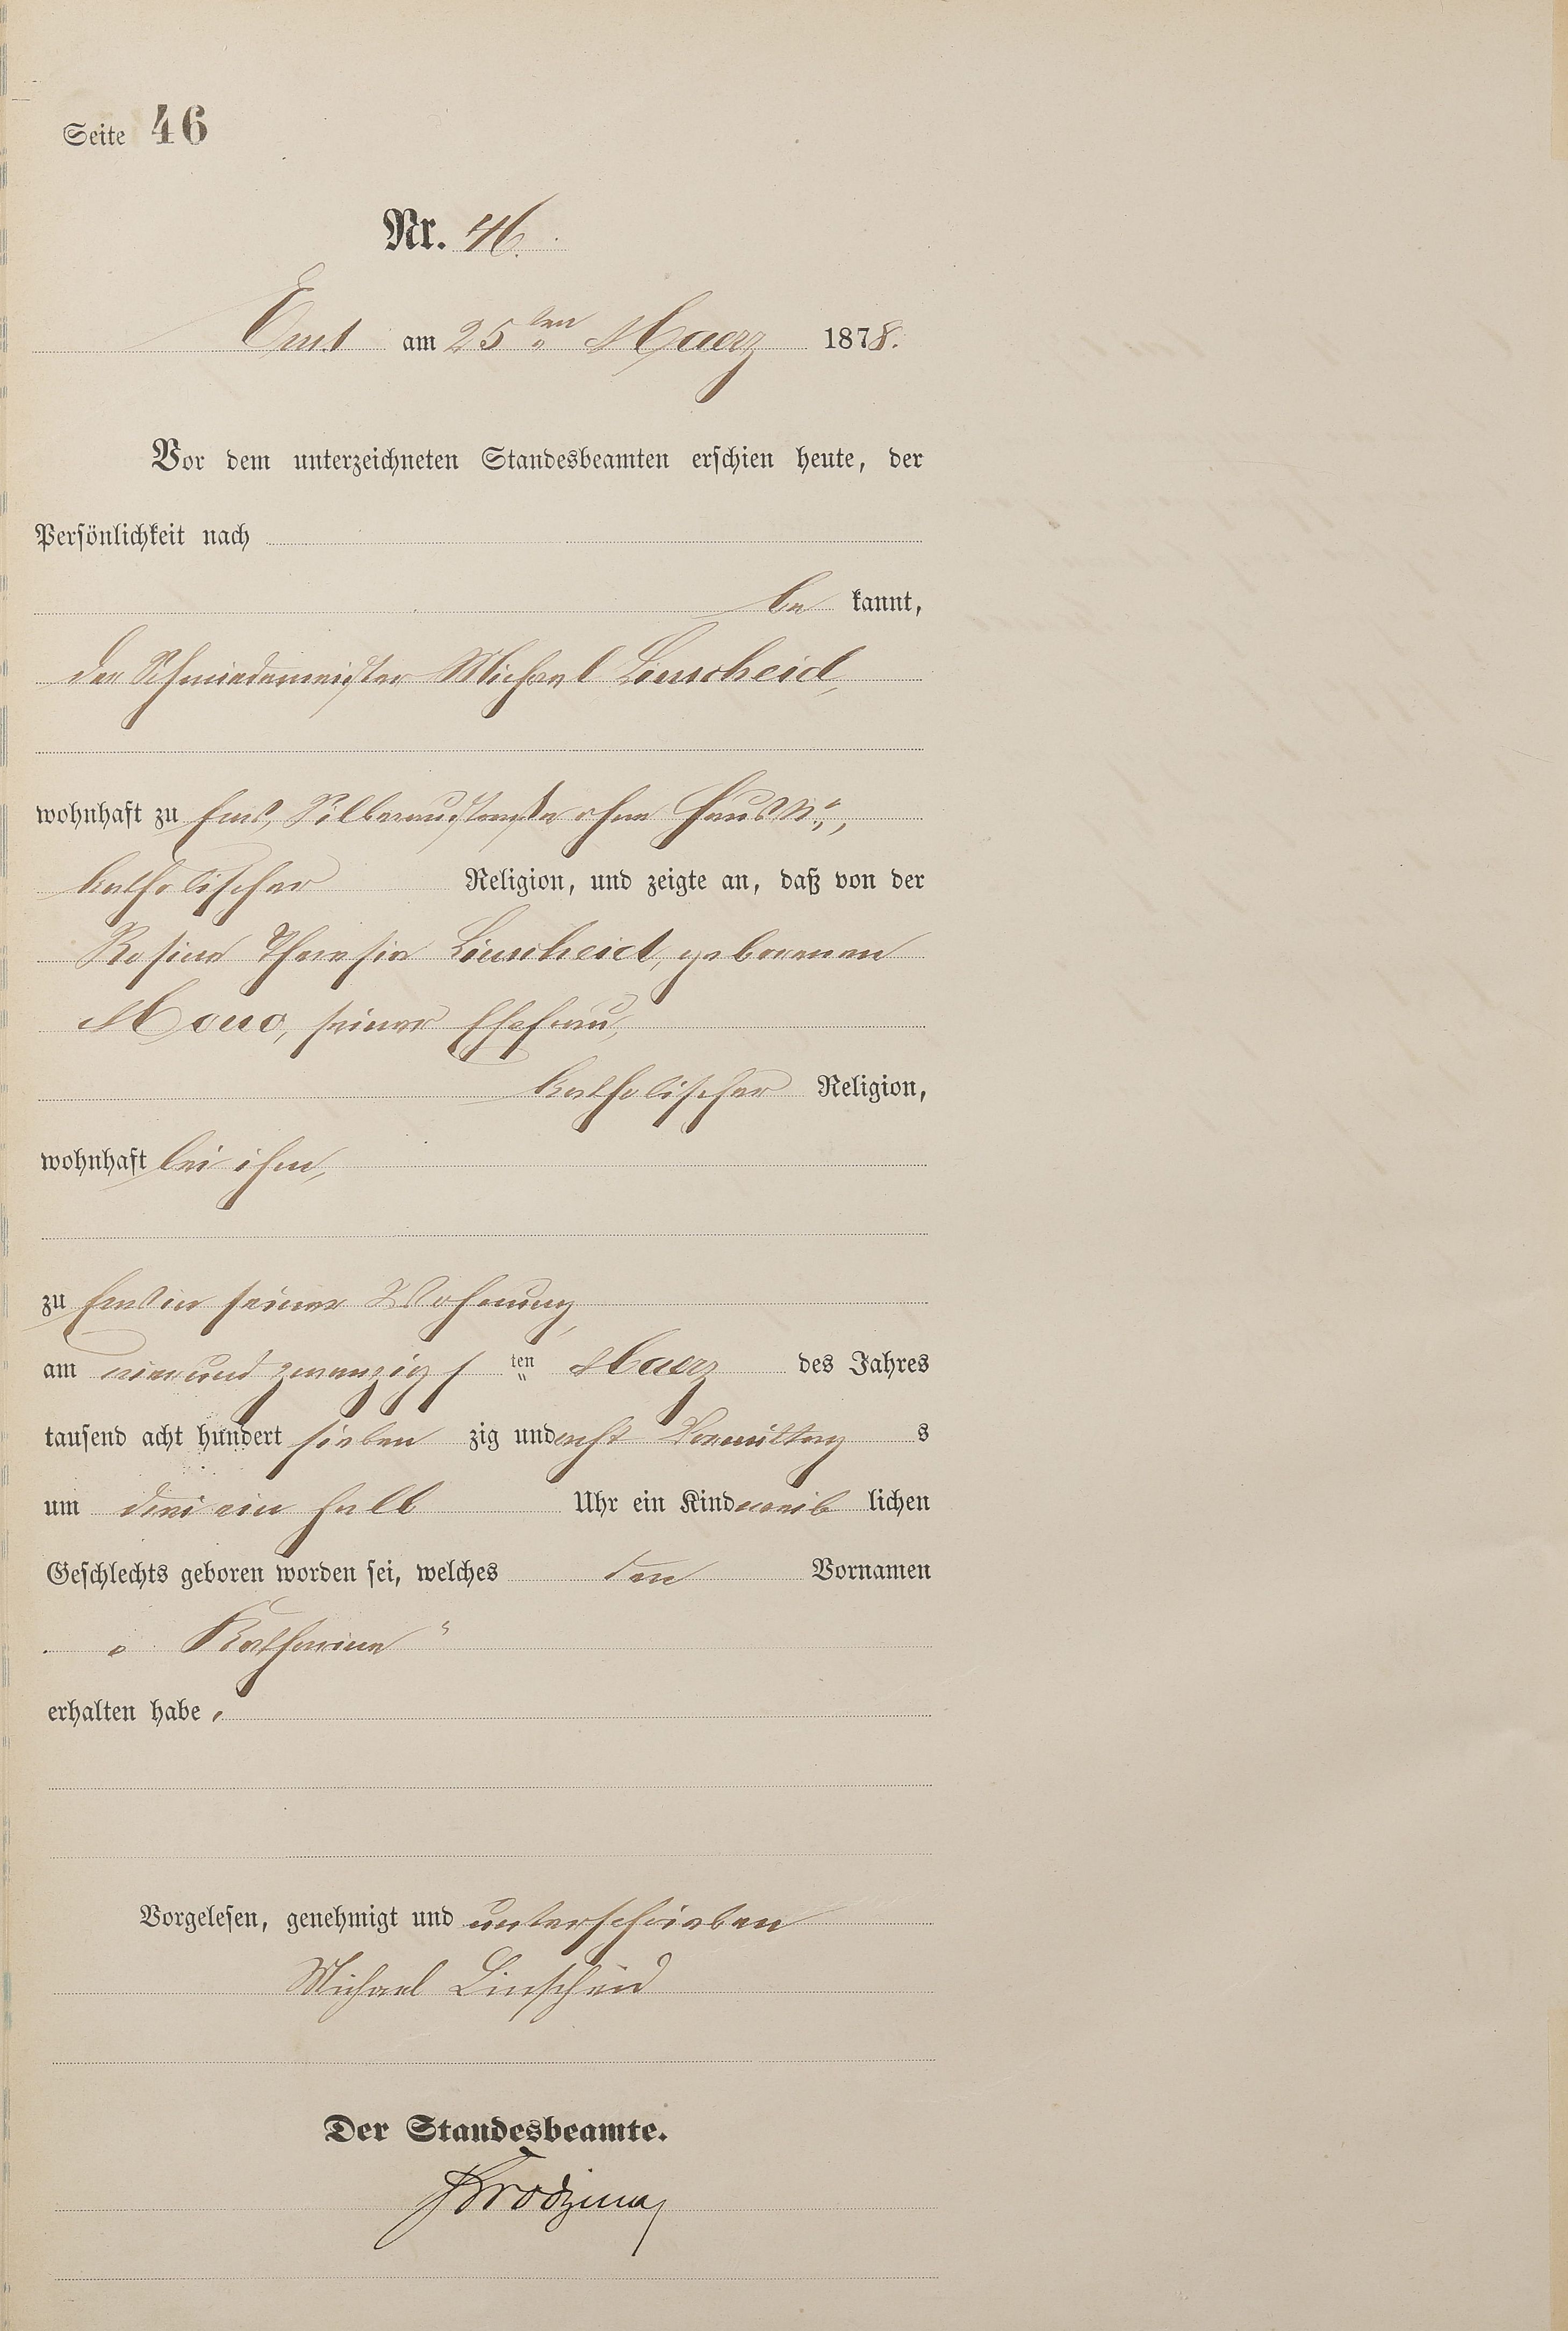 Seite 46
Nr. 46.
Ems am 25ten Maerz 1878.
Vor dem unterzeichneten Standesbeamten erschien heute, der
Persönlichkeit nach
be kannt,
der Schmiedemeister Michael Linscheid,
wohnhaft zu Ems, Silberaustraße ohne Haus No,
katholischer Religion, und zeigte an, daß von der
Rosina Theresia Linscheid, geborenen
seiner Ehefrau,
katholischer Religion,
wohnhaft bei ihm,
zu Ems in seiner Wohnung,
am vierundzwanzigsten Maerz des Jahres
tausend acht hundert sieben zig und acht Vormittags
um drei ein halb Uhr ein Kind weib lichen
Geschlechts geboren worden sei, welches den Vornamen
„Katharina“
erhalten habe.
Vorgelesen, genehmigt und unterschrieben
Michael Linscheid
Der Standesbeamte.